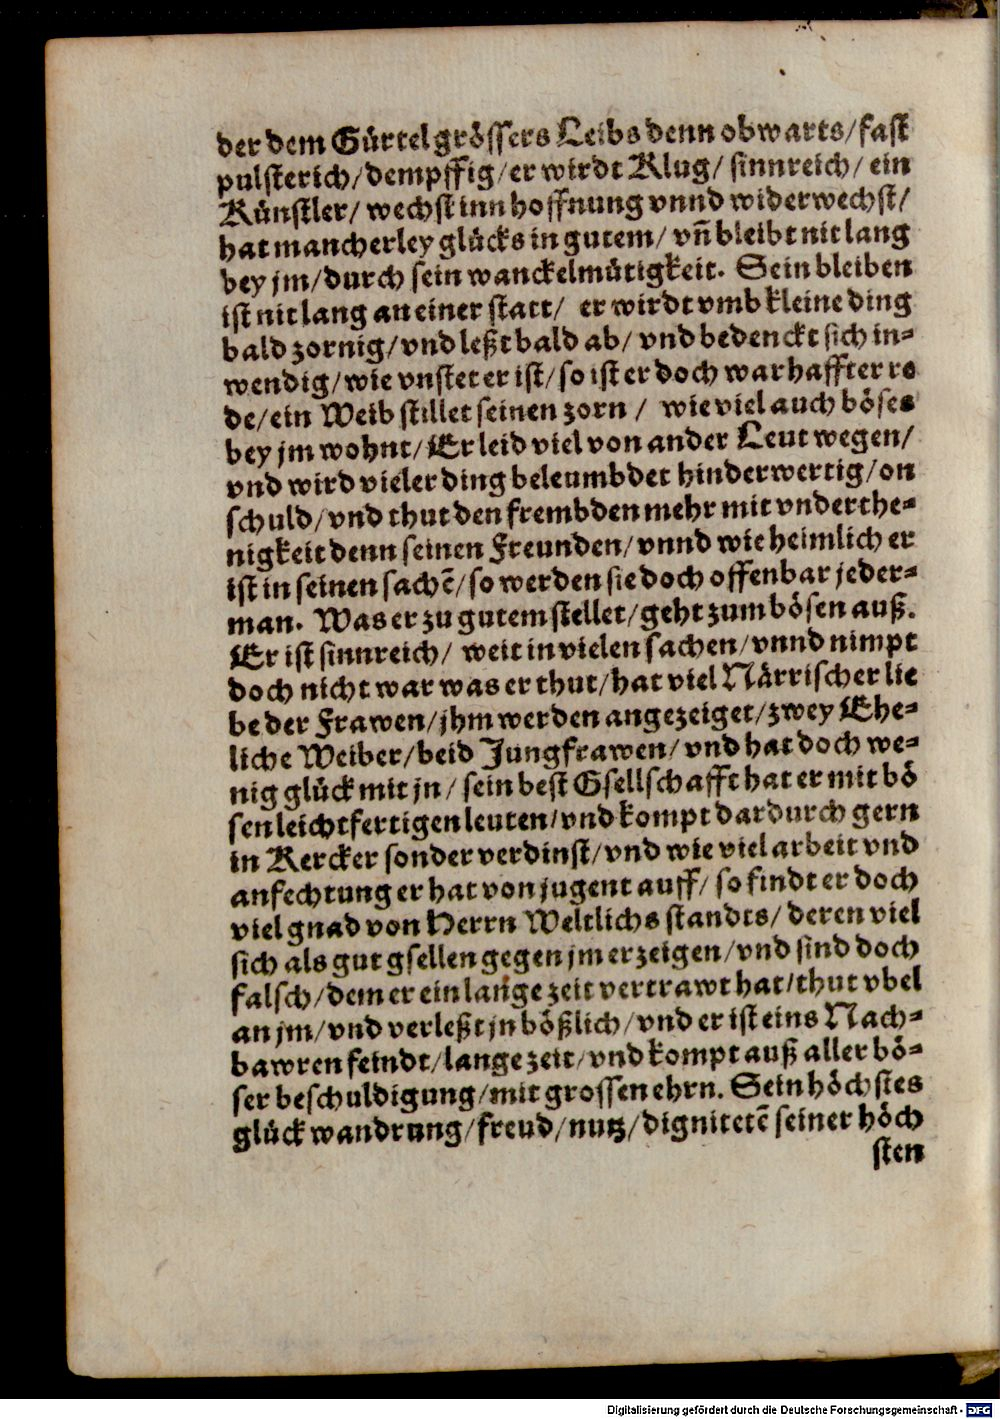 der dem Gürtel grössers Leibs denn obwarts/ fast
pulsterich/ dempffig/ er wirdt Klug/ sinnreich/ ein
Künstler/ wechst inn hoffnung vnnd widerwechst/
hat mancherley glücks in gutem/ vñ bleibt nit lang
bey jm/ durch sein wanckelmütigkeit. Sein bleiben
ist nit lang an einer statt/ er wirdt vmb kleine ding
bald zornig/ vnd leßt bald ab/ vnd bedenckt sich in-
wendig/ wie vnstet er ist/ so ist er doch warhaffter re
de/ ein Weib stillet seinen zorn/ wie viel auch böses
bey jm wohnt/ Er leid viel von ander Leut wegen/
vnd wird vieler ding beleumbdet hinderwertig/ on
schuld/ vnd thut den frembden mehr mit vnderthe-
nigkeit denn seinen Freunden/ vnnd wie heimlich er
ist in seinen sachē/ so werden sie doch offenbar jeder-
man. Was er zu gutem stellet/ geht zum bösen auß.
Er ist sinnreich/ weit in vielen sachen/ vnnd nimpt
doch nicht war was er thut/ hat viel Närrischer lie
be der Frawen/ jhm werden angezeiget/ zwey Ehe-
liche Weiber/ beid Jungfrawen/ vnd hat doch we-
nig glück mit jn/ sein best Gsellschafft hat er mit bö
sen leichtfertigen leuten/ vnd kompt dardurch gern
in Kercker sonder verdinst/ vnd wie viel arbeit vnd
anfechtung er hat von jugent auff/ so findt er doch
viel gnad von Herrn Weltlichs standts/ deren viel
sich als gut gsellen gegen jm erzeigen/ vnd sind doch
falsch/ dem er ein lange zeit vertrawt hat/ thut vbel
an jm/ vnd verleßt jn bößlich/ vnd er ist eins Nach-
bawren feindt/ lange zeit/ vnd kompt auß aller bö-
ser beschuldigung/ mit grossen ehrn. Sein höchstes
glück wandrung/ freud/ nutz/ dignitetē seiner höch
sten
Digitalisierung gefördert durch die Deutsche Forschungsgemeinschaft - DFG